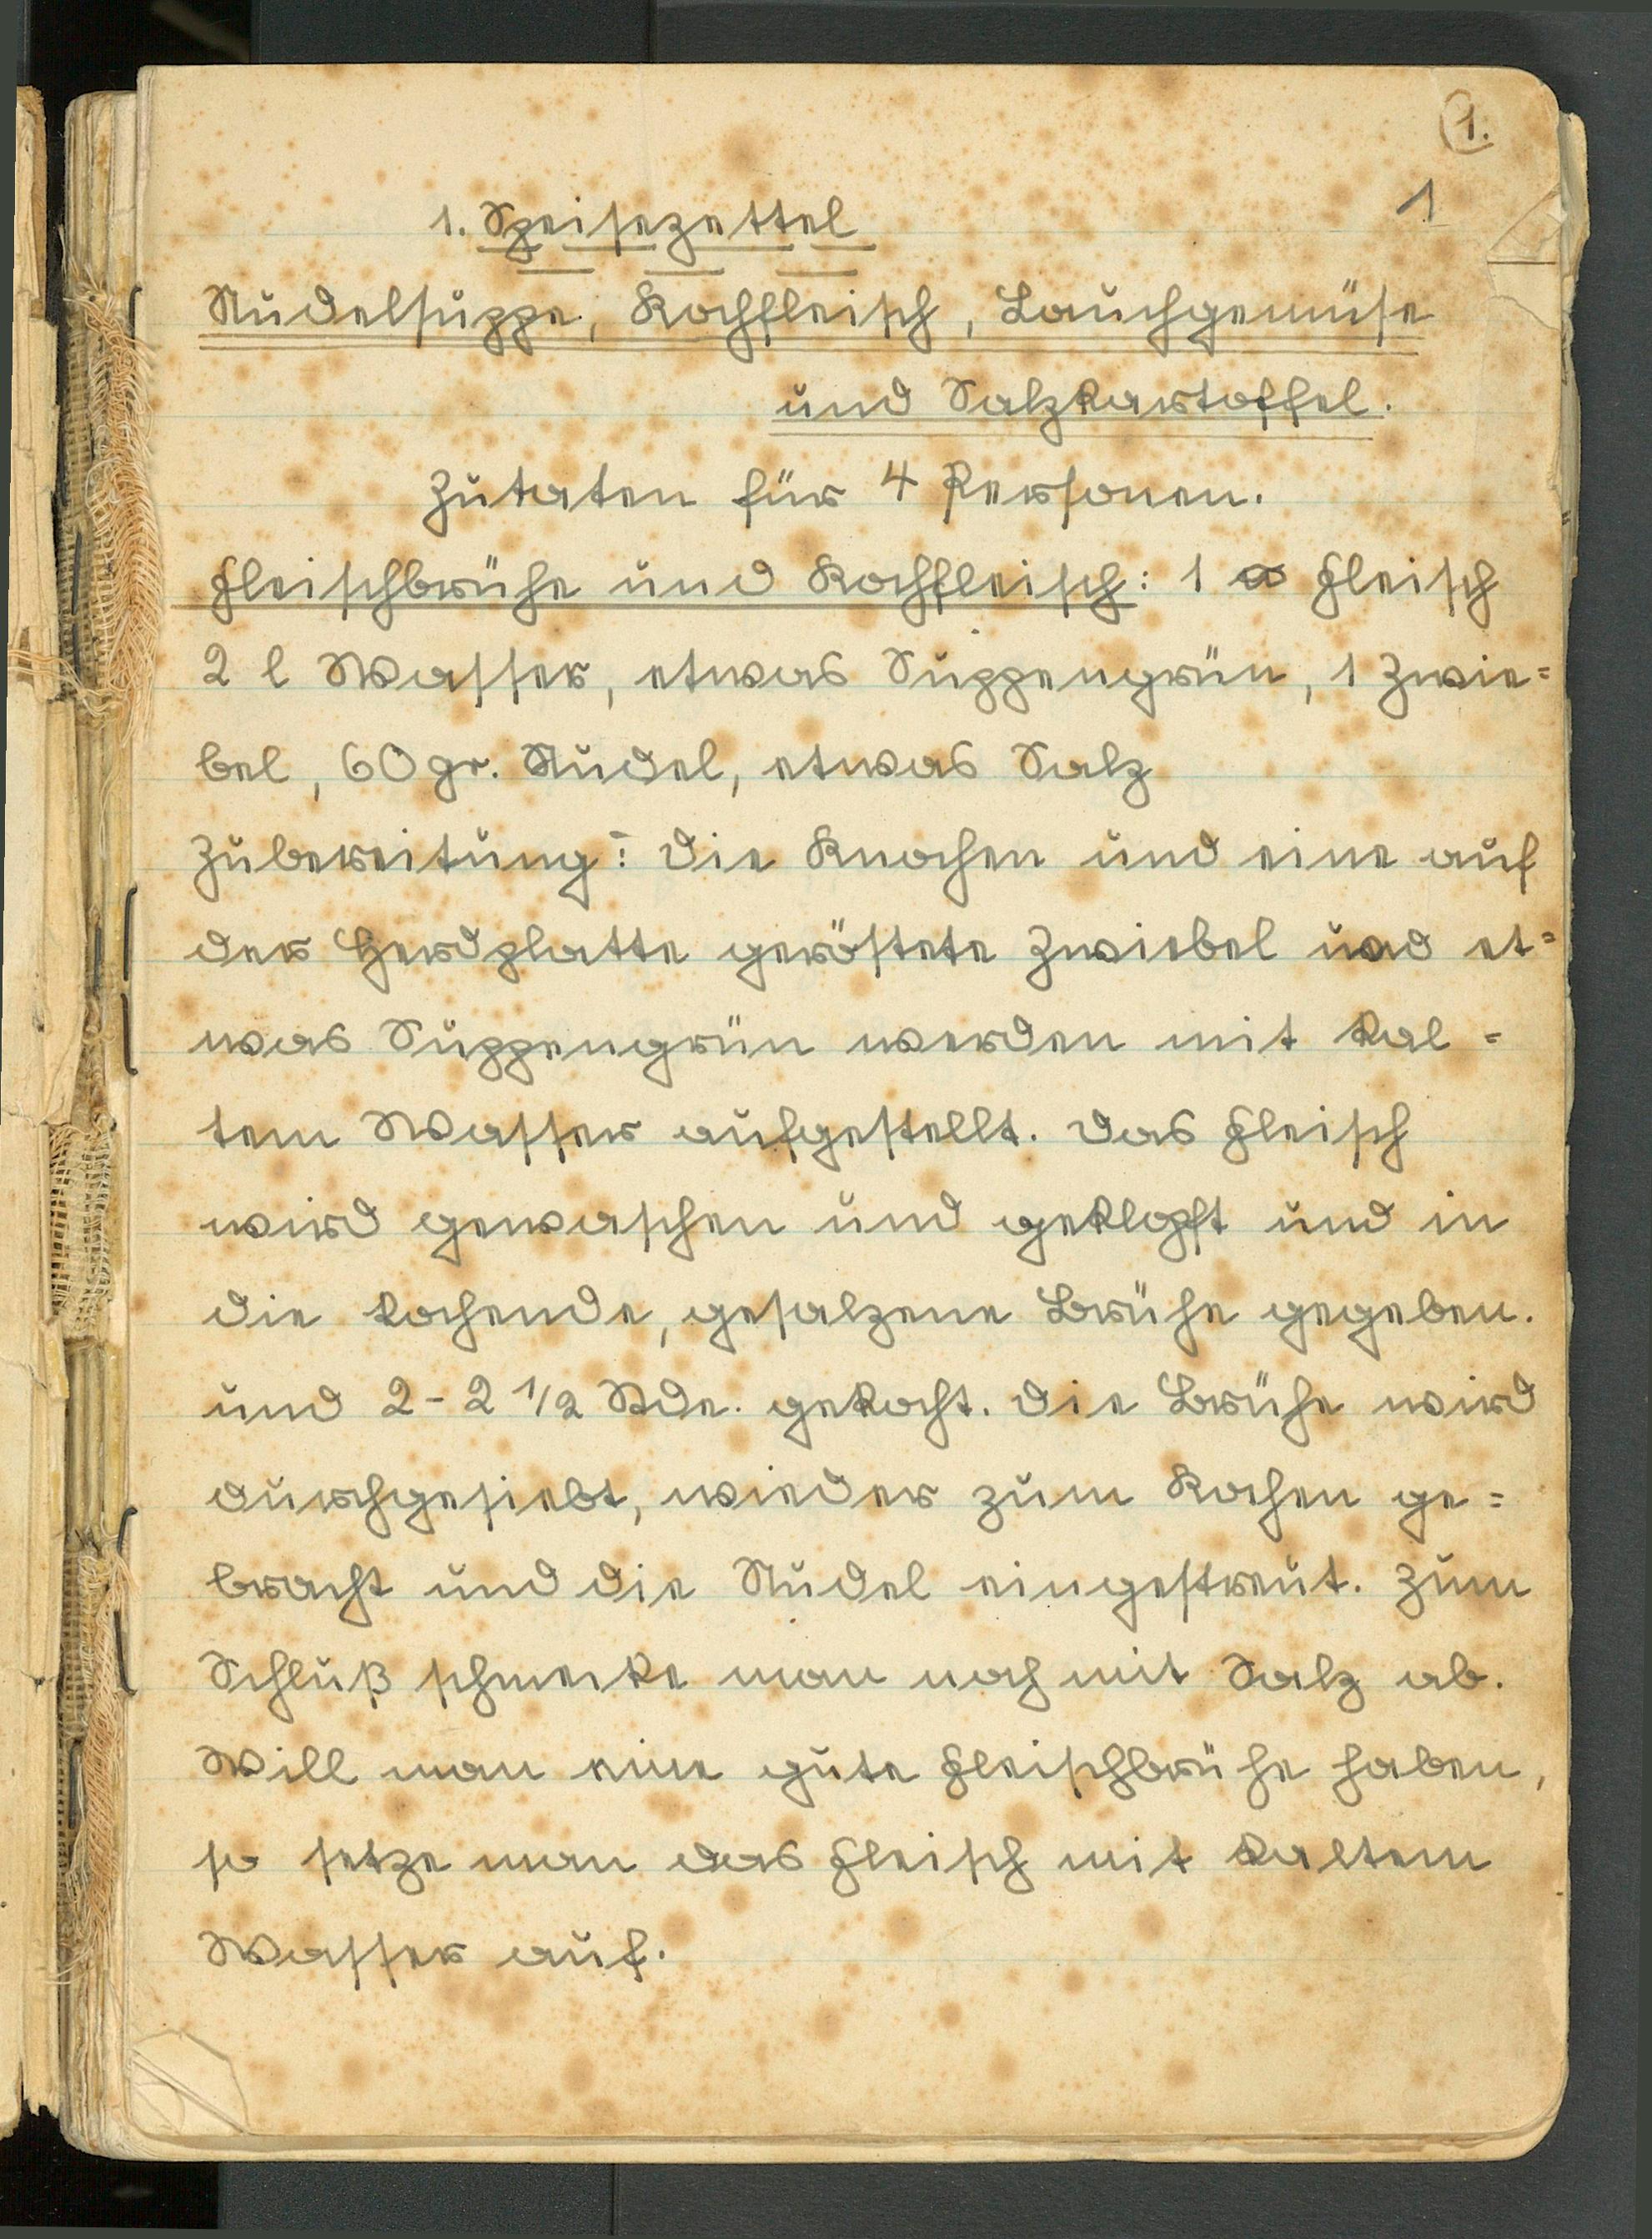 1.
1
1. Speisezettel
Nudelsuppe, Kochfleisch, Lauchgemüse
und Salzkartoffel.
Zutaten für 4 Personen.
Fleischbrühe und Kochfleisch: 1 ℔ Fleisch
2 l Wasser, etwas Suppengrün, 1 Zwie=
bel, 60 gr. Nudel, etwas Salz
Zubereitung: Die Knochen und eine auf
der Herdplatte geröstete Zwiebel und et=
was Suppengrün werden mit kal=
tem Wasser aufgestellt. Das Fleisch
wird gewaschen und geklopft und in
die kochende, gesalzene Brühe gegeben.
und 2-2 1/2 Stde. gekocht. Die Brühe wird
durchgesiebt, wieder zum Kochen ge=
bracht und die Nudel eingestreut. Zum
Schluß schmecke man noch mit Salz ab.
Will man eine gute Fleischbrühe haben,
so setze man das Fleisch mit kaltem
Wasser auf.